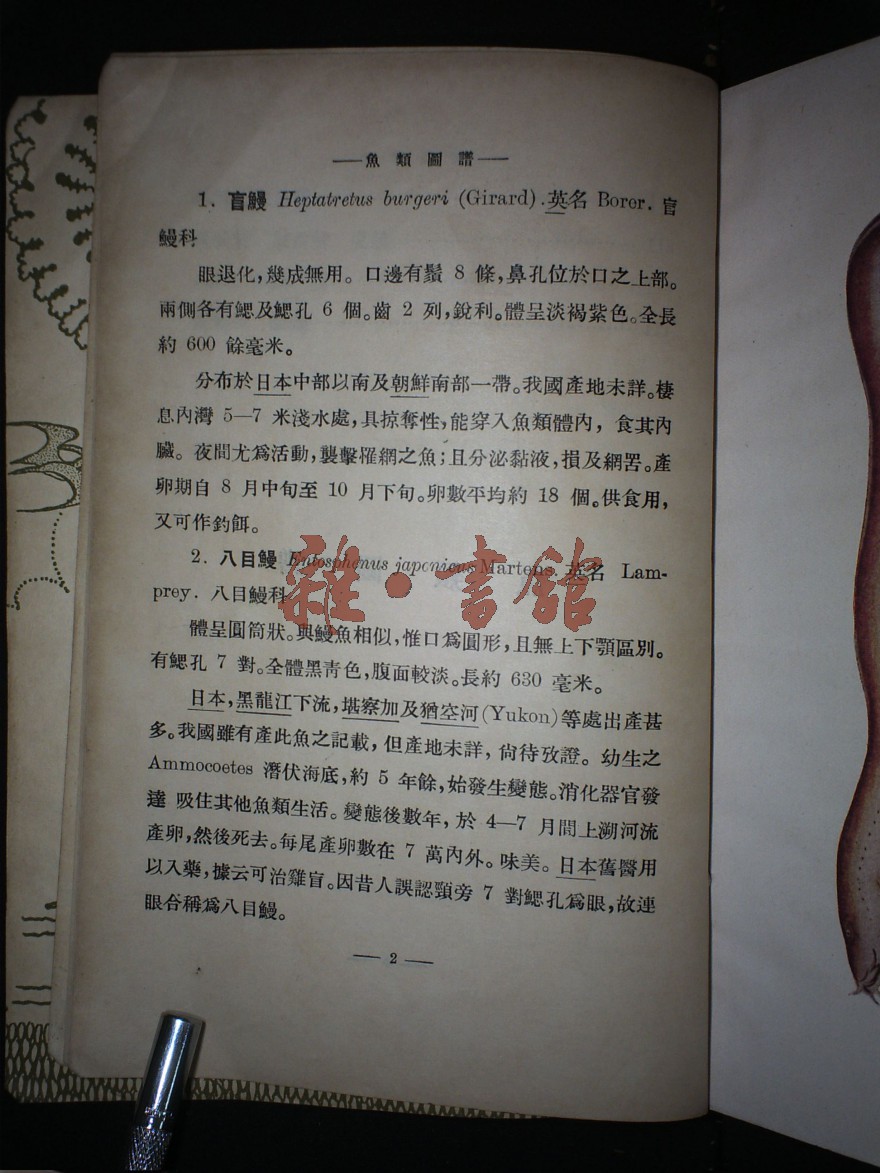 ——魚類圖譜——
1. 盲鰻 Heptatretus burgeri (Girard). 英名 Borer. 盲
鰻科
眼退化,幾成無用。口邊有鬚 8 條,鼻孔位於口之上部。
兩側各有鰓及鰓孔 6 個。齒 2 列,銳利。體呈淡褐紫色。全長
約 600 餘毫米。
分布於日本中部以南及朝鮮南部一帶。我國產地未詳。棲
息內灣 5—7 米淺水處,具掠奪性,能穿入魚類體內, 食其內
臟。夜間尤爲活動,襲擊罹網之魚;且分泌黏液,損及網罟。產
卵期自 8 月中旬至 10 月下旬。卵數平均約 18 個。供食用,
又可作釣餌。
2. 八目鰻 Entosphenus japonicus Martens. 英名 Lam-
prey. 八目鰻科
雜·書館
體呈圓筒狀。與鰻魚相似,惟口爲圓形,且無上下顎區別。
有鰓孔 7 對。全體黑靑色,腹面較淡。長約 630 毫米。
日本,黑龍江下流,堪察加及猶空河(Yukon)等處出產甚
多。我國雖有產此魚之記載, 但產地未詳, 尙待攷證。 幼生之
Ammocoetes 潛伏海底,約 5 年餘,始發生變態。消化器官發
達 吸住其他魚類生活。變態後數年, 於 4—7 月間上溯河流
產卵,然後死去。每尾產卵數在 7 萬內外。味美。日本舊醫用
以入藥,據云可治雞盲。因昔人誤認頸旁 7 對鰓孔爲眼,故連
眼合稱爲八目鰻。
— 2 —